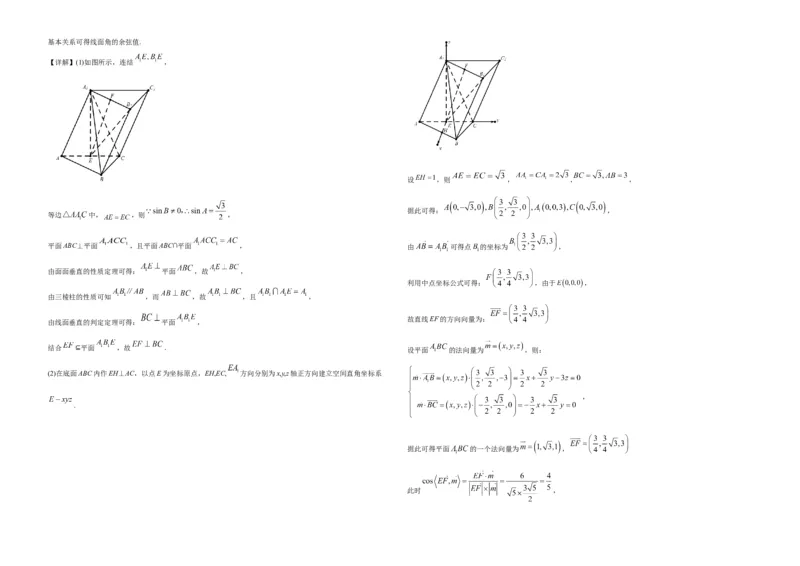 基本关系可得线面角的余弦值.
【详解】(1)如图所示，连结 A₁E,B₁E ，
A₁ C₁
F
B₁
A E C
B
等边△AA₁C中，AE=EC，则 ∵sin B≠0,∴sin A=√3/2 ，
平面ABC⊥平面 A₁ACC₁ ，且平面ABC∩平面 A₁ACC₁=AC ，
由面面垂直的性质定理可得：A₁E⊥平面 ABC ，故 A₁E⊥BC ，
由三棱柱的性质可知 A₁B₁∥AB ，而 AB⊥BC ，故 A₁B₁⊥BC ，且 A₁B₁∩A₁E=A₁ ，
由线面垂直的判定定理可得：BC⊥平面 A₁B₁E ，
结合 EF⊆平面 A₁B₁E ，故 EF⊥BC .
(2)在底面ABC内作EH⊥AC，以点E为坐标原点，EH,EC,EA₁方向分别为x,y,z轴正方向建立空间直角坐标系
E-xyz
.
z
A₁ C₁
F
B₁
A E C y
H
B
x
设 EH=1，则 AE=EC=√3 ，AA₁=CA₁=2√3,BC=√3,AB=3 ，
据此可得：A(0,-√3,0),B(3/2,√3/2,0),A₁(0,0,3),C(0,√3,0) ，
由 AB=A₁B₁ 可得点B₁的坐标为 B₁(3/2,3/2√3,3) ，
利用中点坐标公式可得：F(3/4,3/4√3,3) ，由于E(0,0,0)，
故直线EF的方向向量为：EF=(3/4,3/4√3,3)
设平面 A₁BC 的法向量为 m=(x,y,z) ，则：
m·A₁B=(x,y,z)·(3/2,√3/2,-3)=3/2x+√3/2y-3z=0
m·BC=(x,y,z)·(-3/2,√3/2,0)=-3/2x+√3/2y=0
，
据此可得平面A₁BC的一个法向量为 m=(1,√3,1) ，EF=(3/4,3/4√3,3)
此时 cos⟨EF,m⟩=EF·m/|EF|×|m|=6/√5×3√5/2=4/5 ，